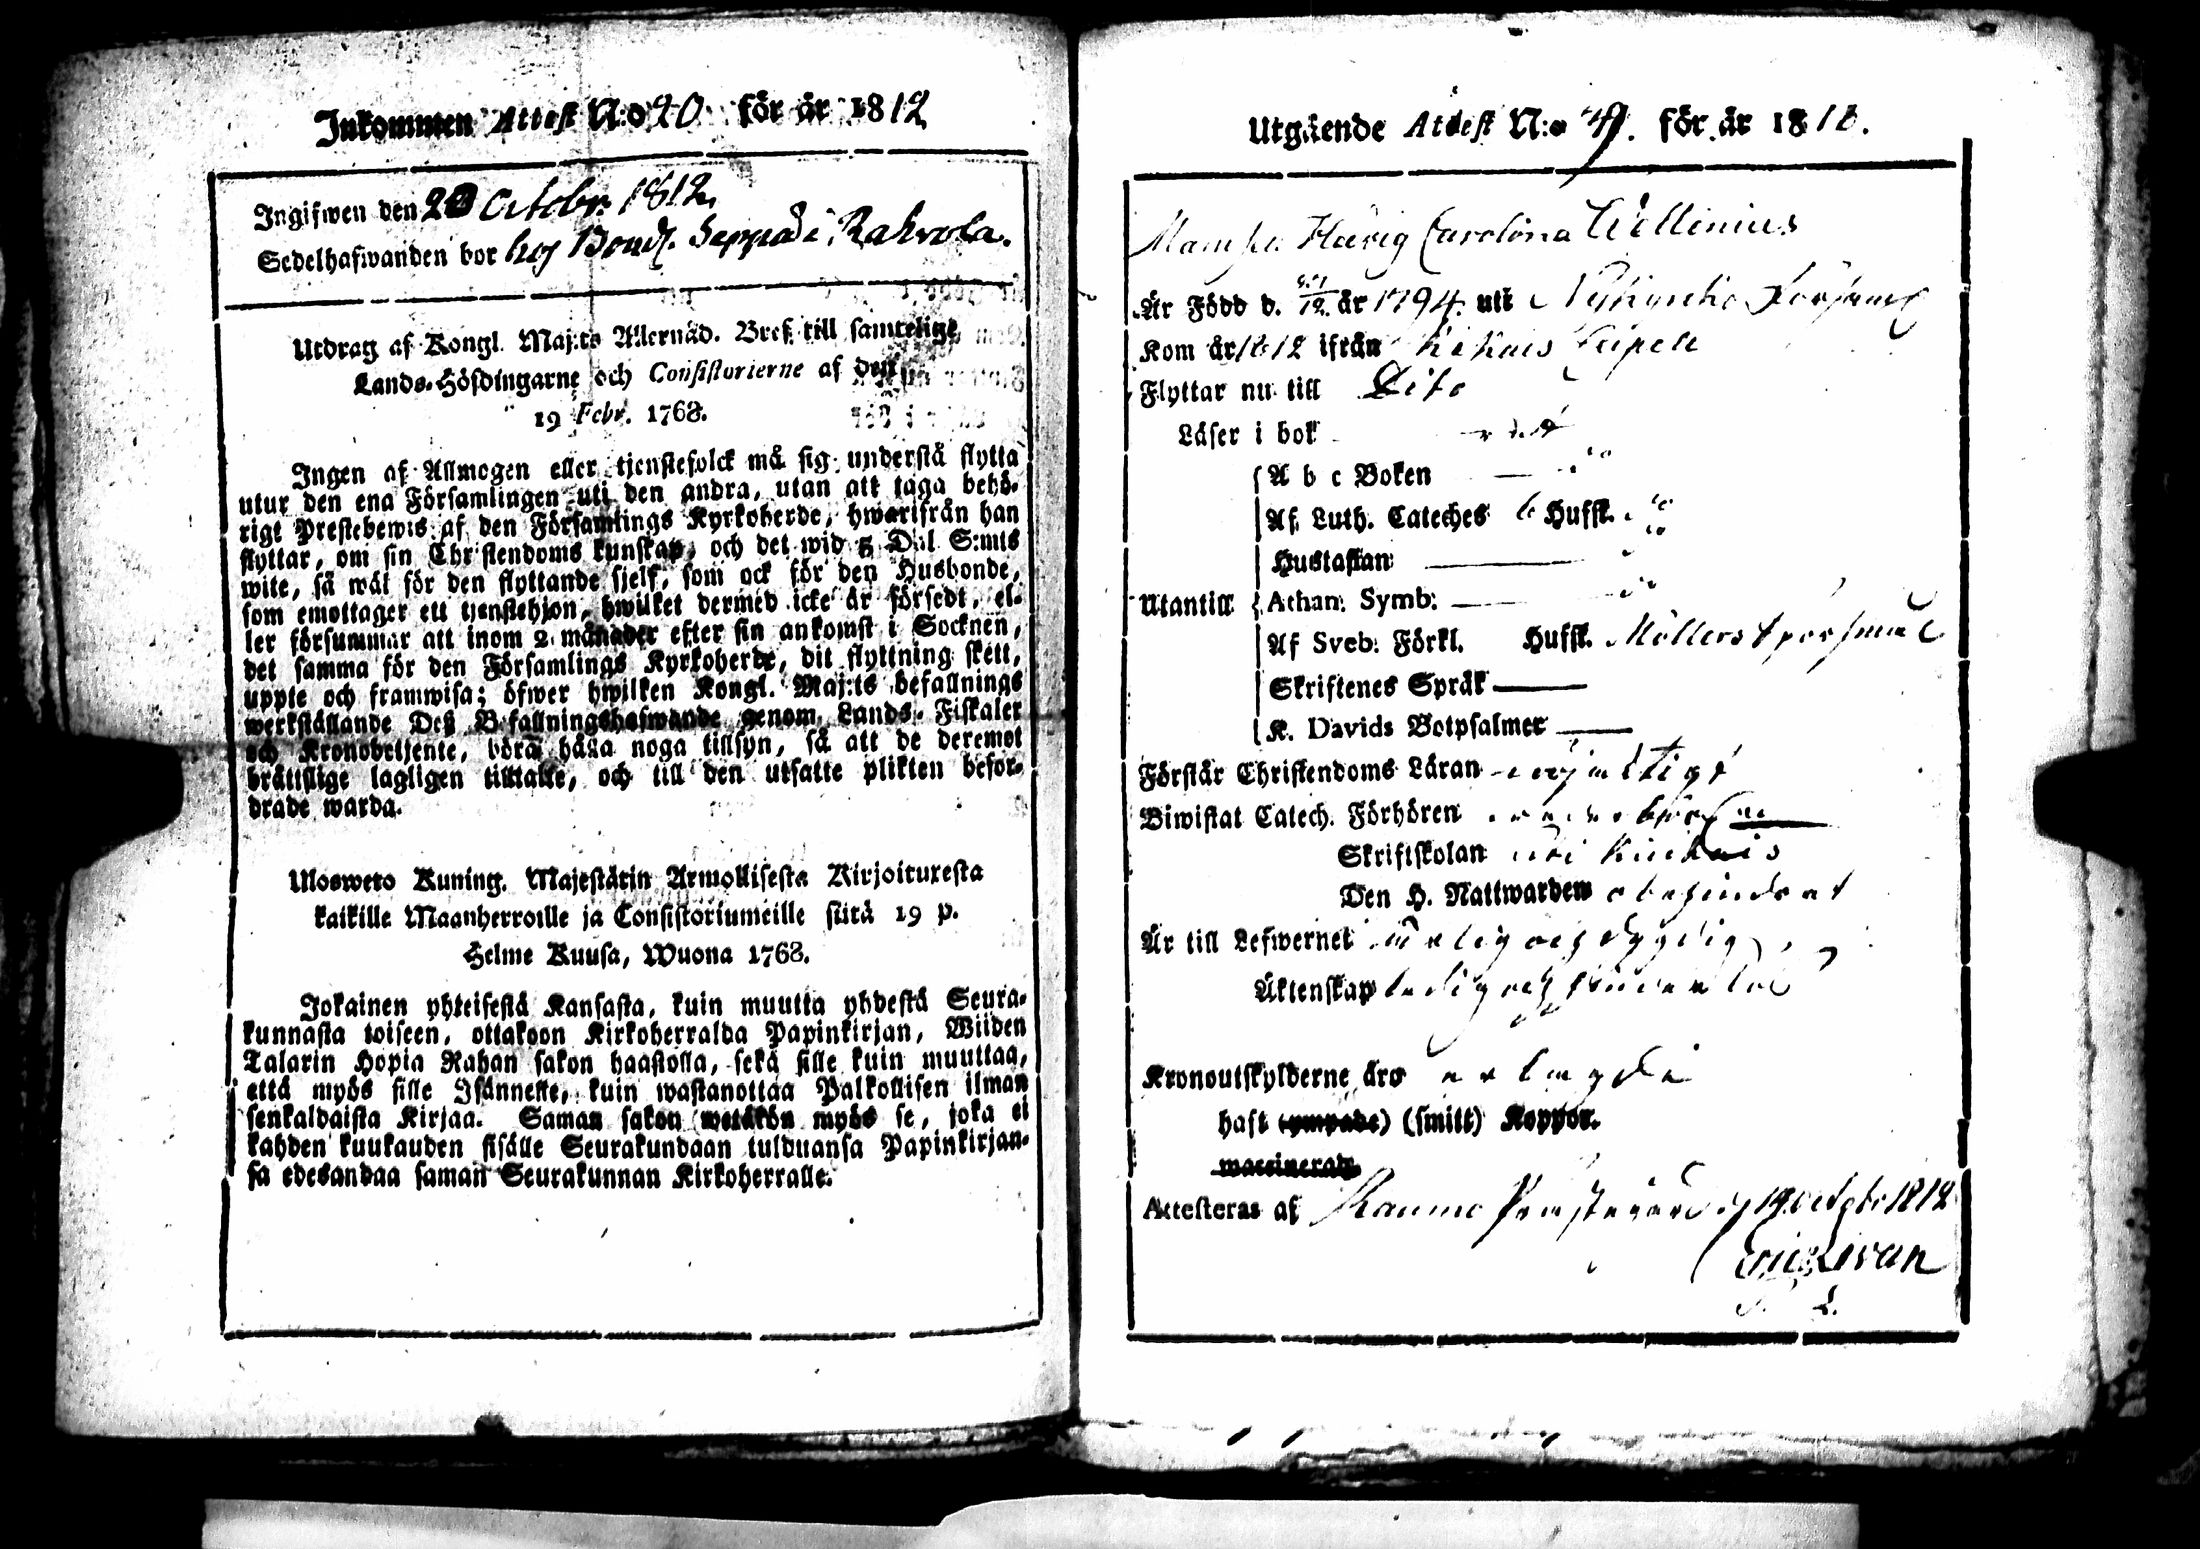 Inkommen Attest N:o 20 för år 1812
Ingifwen den 20 Octobr. 1812.
Sedelhafwanden bor hos Bond. Seppä i Rakvola.
Utdrag af Kongl. Maj:ts Allernåd. Bref till samtelige
Lands-Höfdingarne och Consistorierne af den
19 Febr. 1768.
Ingen af Allmogen eller tjenstefolck må sig understå flytta
utur den ena Församlingen uti den andra, utan att taga behö-
rigt Prestebewis af den Församlings Kyrkoherde, hwarifrån han
flyttar, om sin Christendoms kunskap, och det wid 5 Dal. S:mts
wite, så wäl för den flyttande sjelf, som ock för den Husbonde,
som emottager ett tjenstehjon, hwilket dermed icke är försedt, el-
ler försummar att inom 2 månader efter sin ankomst i Socknen,
det samma för den Församlings Kyrkoherde, dit flyttning skett,
uppte och framwisa; öfwer hwilken Kongl. Maj:ts befallnings
werkställande Deß Befallningshafwande genom Lands-Fiskaler
och Kronobetjente, böra hålla noga tillsyn, så att de deremot
bråttslige lagligen tilltalte, och till den utsatte plikten befor-
drade warda.
Ulosweto Kuning. Majestätin Armollisesta Kirjoituxesta
kaikille Maanherroille ja Consistoriumeille siitä 19 p.
Helme Kuusa, Wuona 1768.
Jokainen yhteisestä Kansasta, kuin muutta yhdestä Seura-
kunnasta toiseen, ottakoon Kirkoherralda Papinkirjan, Wiiden
Talarin Hopia Rahan sakon haastolla, sekä sille kuin muuttaa,
että myös sille Isännelle, kuin wastanottaa Palkollisen ilman
senkaldaista Kirjaa. Saman sakon wetäkön myös se, joka ei
kahden kuukauden sisälle Seurakundaan tulduansa Papinkirjan-
sa edesandaa saman Seurakunnan Kirkoherralle.
Utgående Attest N:o för år 18
Carolina Wellenius
Är Född d. år 1794. uti Nykyrko
Kom år 1812 ifrån
Flyttar nu till Dito
Läser i bok
A b c Boken
Af Luth. Cateches Hufst.
Hustaflan
Utantill Athan. Symb:
Af Sveb: Förkl. Hufst. Möllers spörsmål
Skriftenes Språk
K. Davids Botpsalmer
Förstår Christendoms Läran nöjaktigt
Biwistat Catech. Förhören
Skriftskolan
Den H. Nattwarden obehindrat
Är till Lefwernet ärlig och dygdig
Äktenskap ledig och
Kronoutskylderne äro erlagde
haft (ympade) (smitt) Koppor.
waccinerad
Attesteras af Raumo 19 octobr 1812